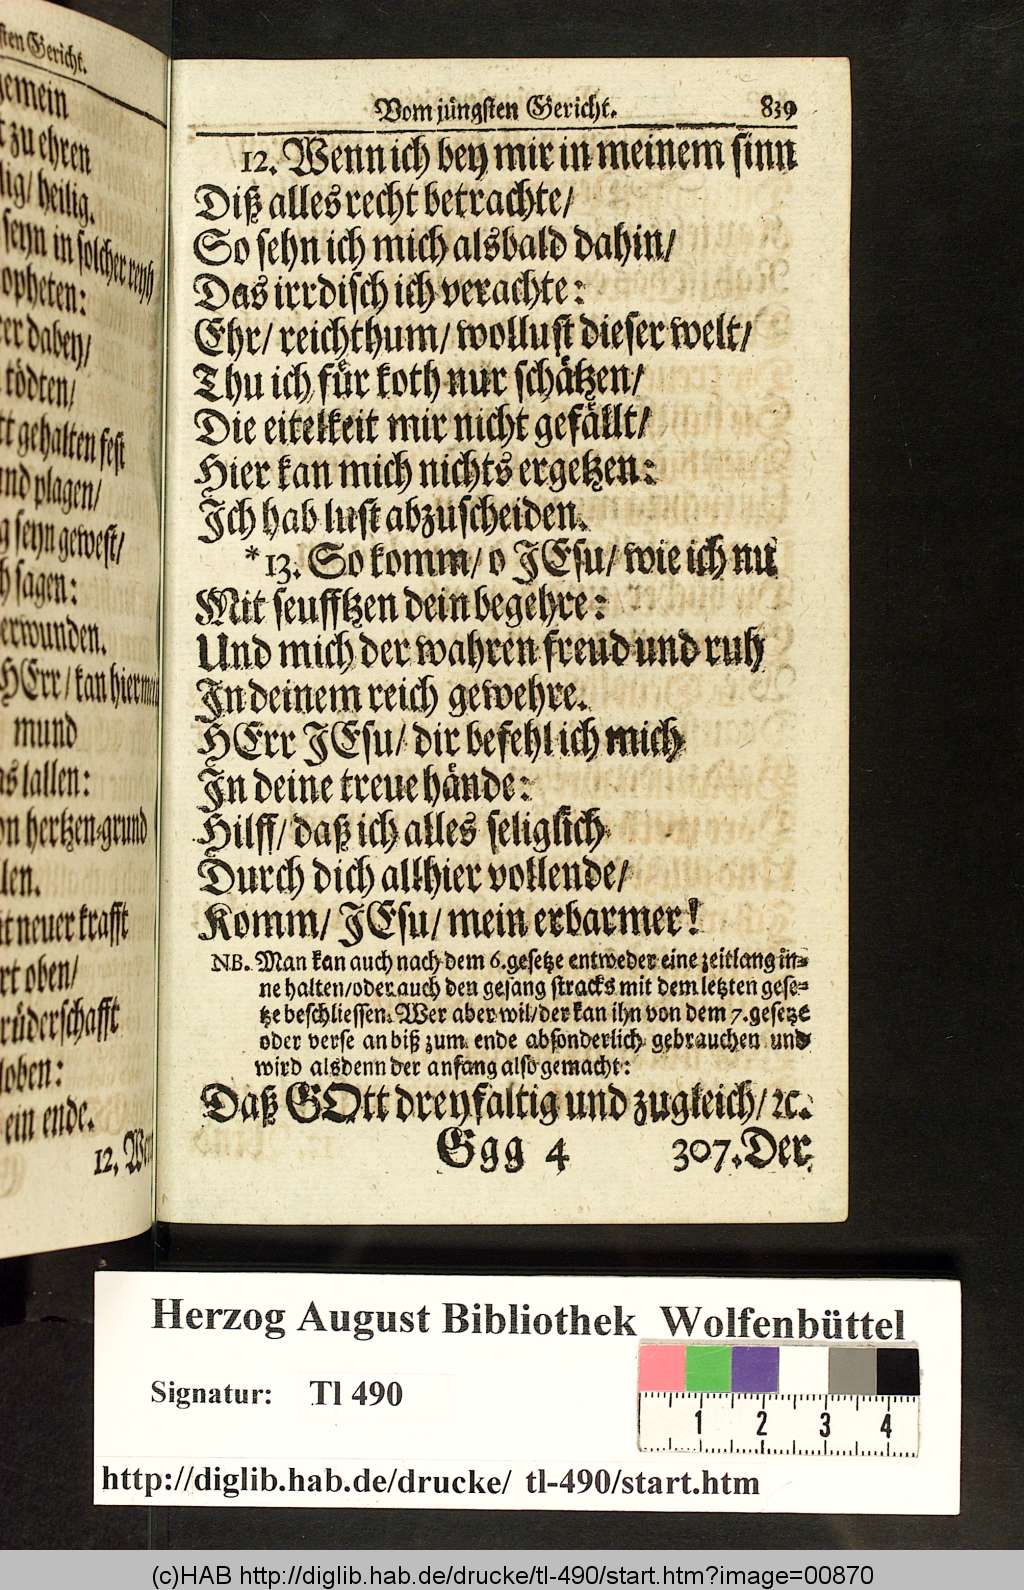 sten Gericht.
gemein
t zu ehren
lig/ heilig.
seyn in solcher reyh
opheten:
er dabey/
tödten/
tt gehalten fest
nd plagen/
g seyn gewest/
h sagen:
erwunden.
HErr/ kan hier
mund
as lallen:
on hertzen-grund
len.
it neuer krafft
rt oben/
rüderschafft
loben:
ein ende.
12. Wen
Vom jüngsten Gericht. 839
12. Wenn ich bey mir in meinem sinn
Diß alles recht betrachte/
So sehn ich mich alsbald dahin/
Das irrdisch ich verachte:
Ehr/ reichthum/ wollust dieser welt/
Thu ich für koth nur schätzen/
Die eitelkeit mir nicht gefällt/
Hier kan mich nichts ergetzen:
Ich hab lust abzuscheiden.
*13. So komm/ o JEsu/ wie ich nu
Mit seufftzen dein begehre:
Und mich der wahren freud und ruh
In deinem reich gewehre.
HErr JEsu/ dir befehl ich mich
In deine treue hände:
Hilff/ daß ich alles seliglich
Durch dich allhier vollende/
Komm/ JEsu/ mein erbarmer!
NB. Man kan auch nach dem 6. gesetze entweder eine zeitlang in-
ne halten/ oder auch den gesang stracks mit dem letzten gese-
tze beschliessen. Wer aber wil/ der kan ihn von dem 7. gesetze
oder verse an biß zum ende absonderlich gebrauchen und
wird alsdenn der anfang also gemacht:
Daß GOtt dreyfaltig und zugleich/ ꝛc.
Ggg 4 307. Der
Herzog August Bibliothek Wolfenbüttel
Signatur: Tl 490
1 2 3 4
http://diglib.hab.de/drucke/ tl-490/start.htm
(c)HAB http://diglib.hab.de/drucke/tl-490/start.htm?image=00870